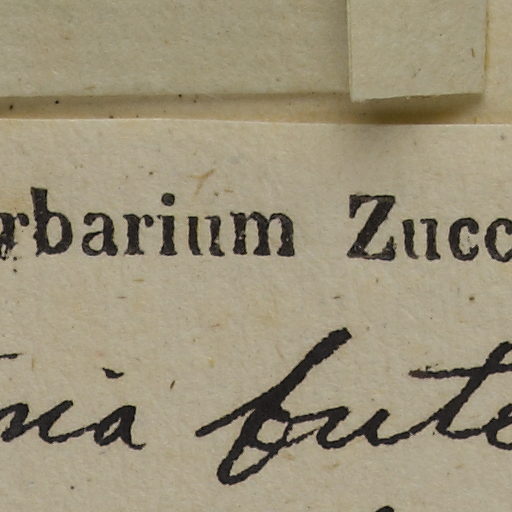 rbarium Zucc
ria frute